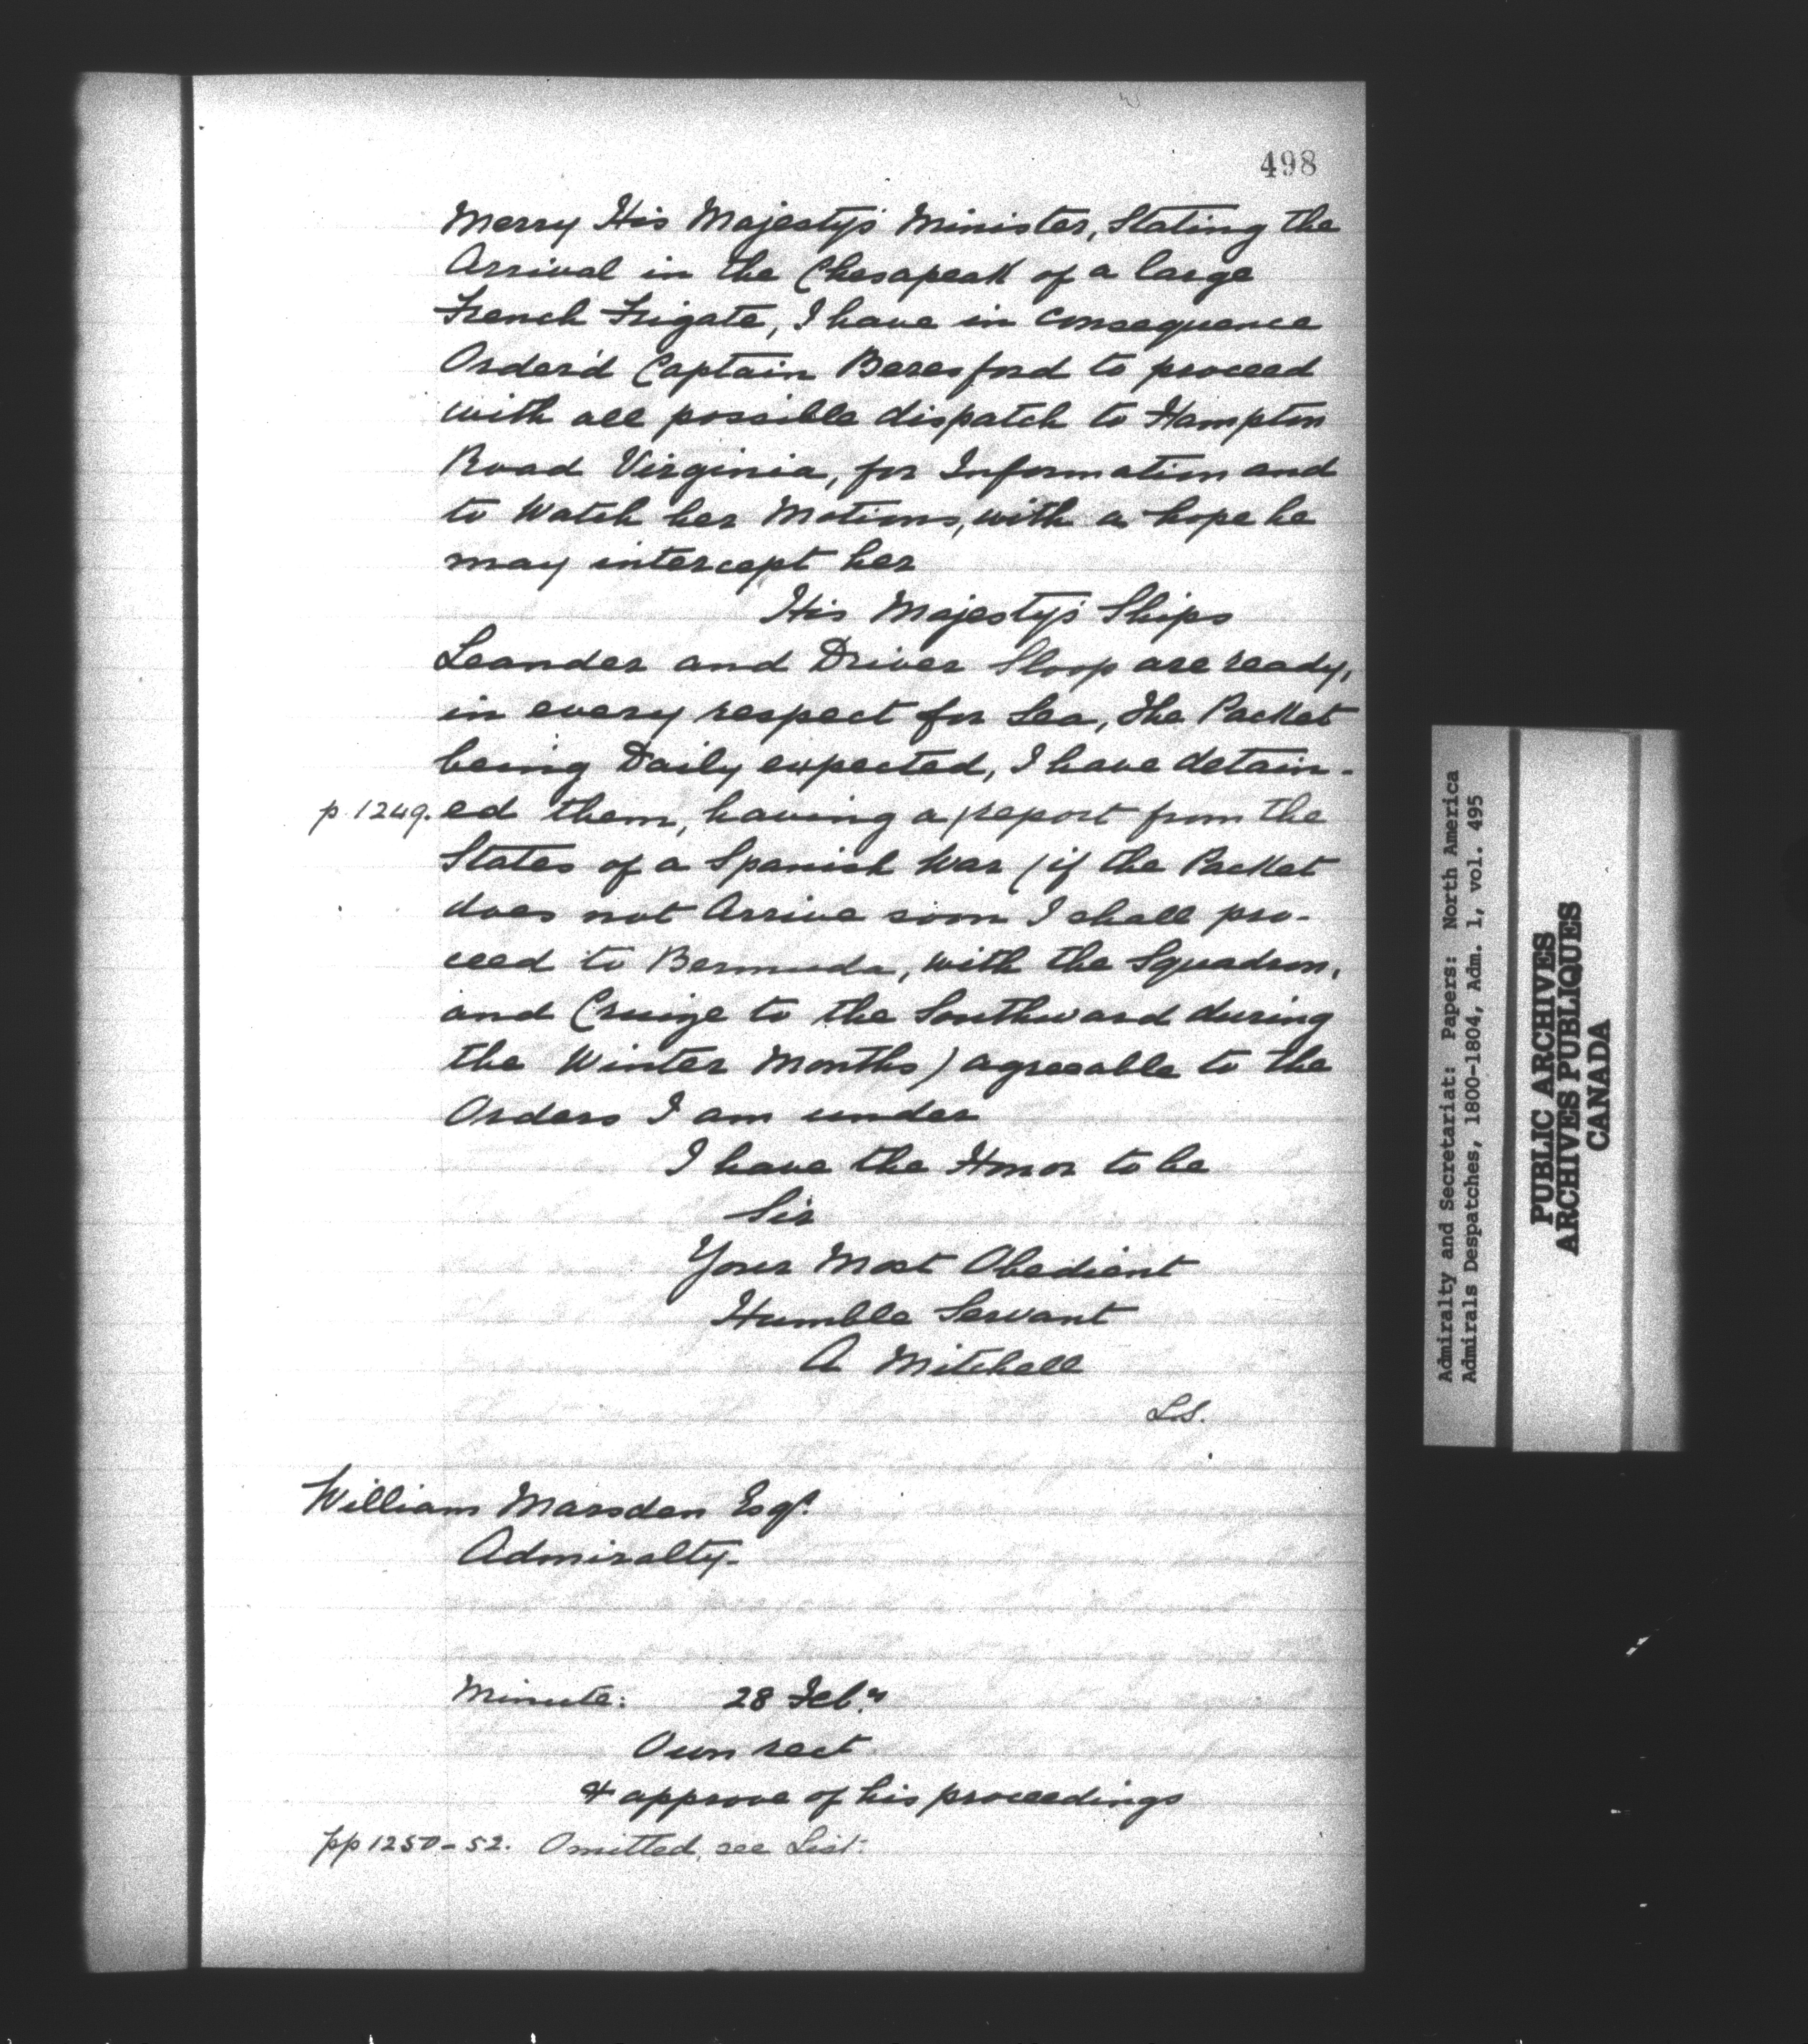 498
Merry His Majesty's Minister, Stating the
Arrival in the Chesapeak of a large
French Frigate, I have in consequence
Order'd Captain Beresford to proceed
with all possible dispatch to Hampton
Road Virginia, for Information and
to Watch her Motions, with a hope he
may intercept her
His Majesty's Ships
Leander and Driver Sloop are ready,
in every respect for Sea, the Packet
being Daily expected, I have detain-
p. 1249. ed them, having a / report from the
States of a Spanish War (if the Packet
does not Arrive soon I shall pro-
ceed to Bermuda, with the Squadron,
and Cruize to the Southward during
the Winter Months) agreeable to the
Orders I am under
I have the Honor to be
Sir
Your Most Obedient
Humble Servant
A Mitchell
L.S.
William Marsden Esqr.
Admiralty.
Minute: 28 Feb.y
Own rect
& approve of his proceedings
pp 1250-52. Omitted, see List.
Admiralty and Secretariat: Papers: North America
Admirals Despatches, 1800-1804, Adm. 1, vol. 495
PUBLIC ARCHIVES
ARCHIVES PUBLIQUES
CANADA